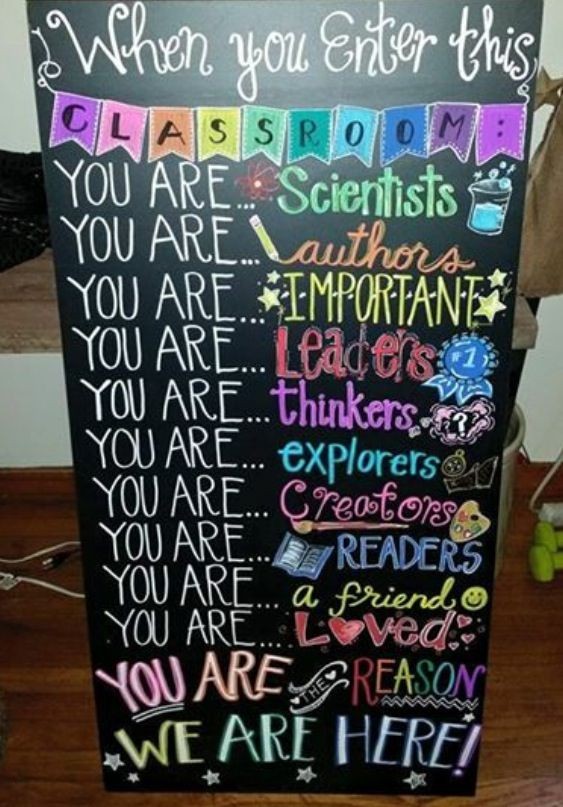 When you Enter this
CLASSROOM:
YOU ARE... Scientists
YOU ARE... authors
YOU ARE... IMPORTANT
YOU ARE... Leaders #1
YOU ARE... thinkers ?
YOU ARE... explorers
YOU ARE... Creators
YOU ARE... READERS
YOU ARE... a friend
YOU ARE.... Loved
YOU ARE THE REASON
WE ARE HERE!